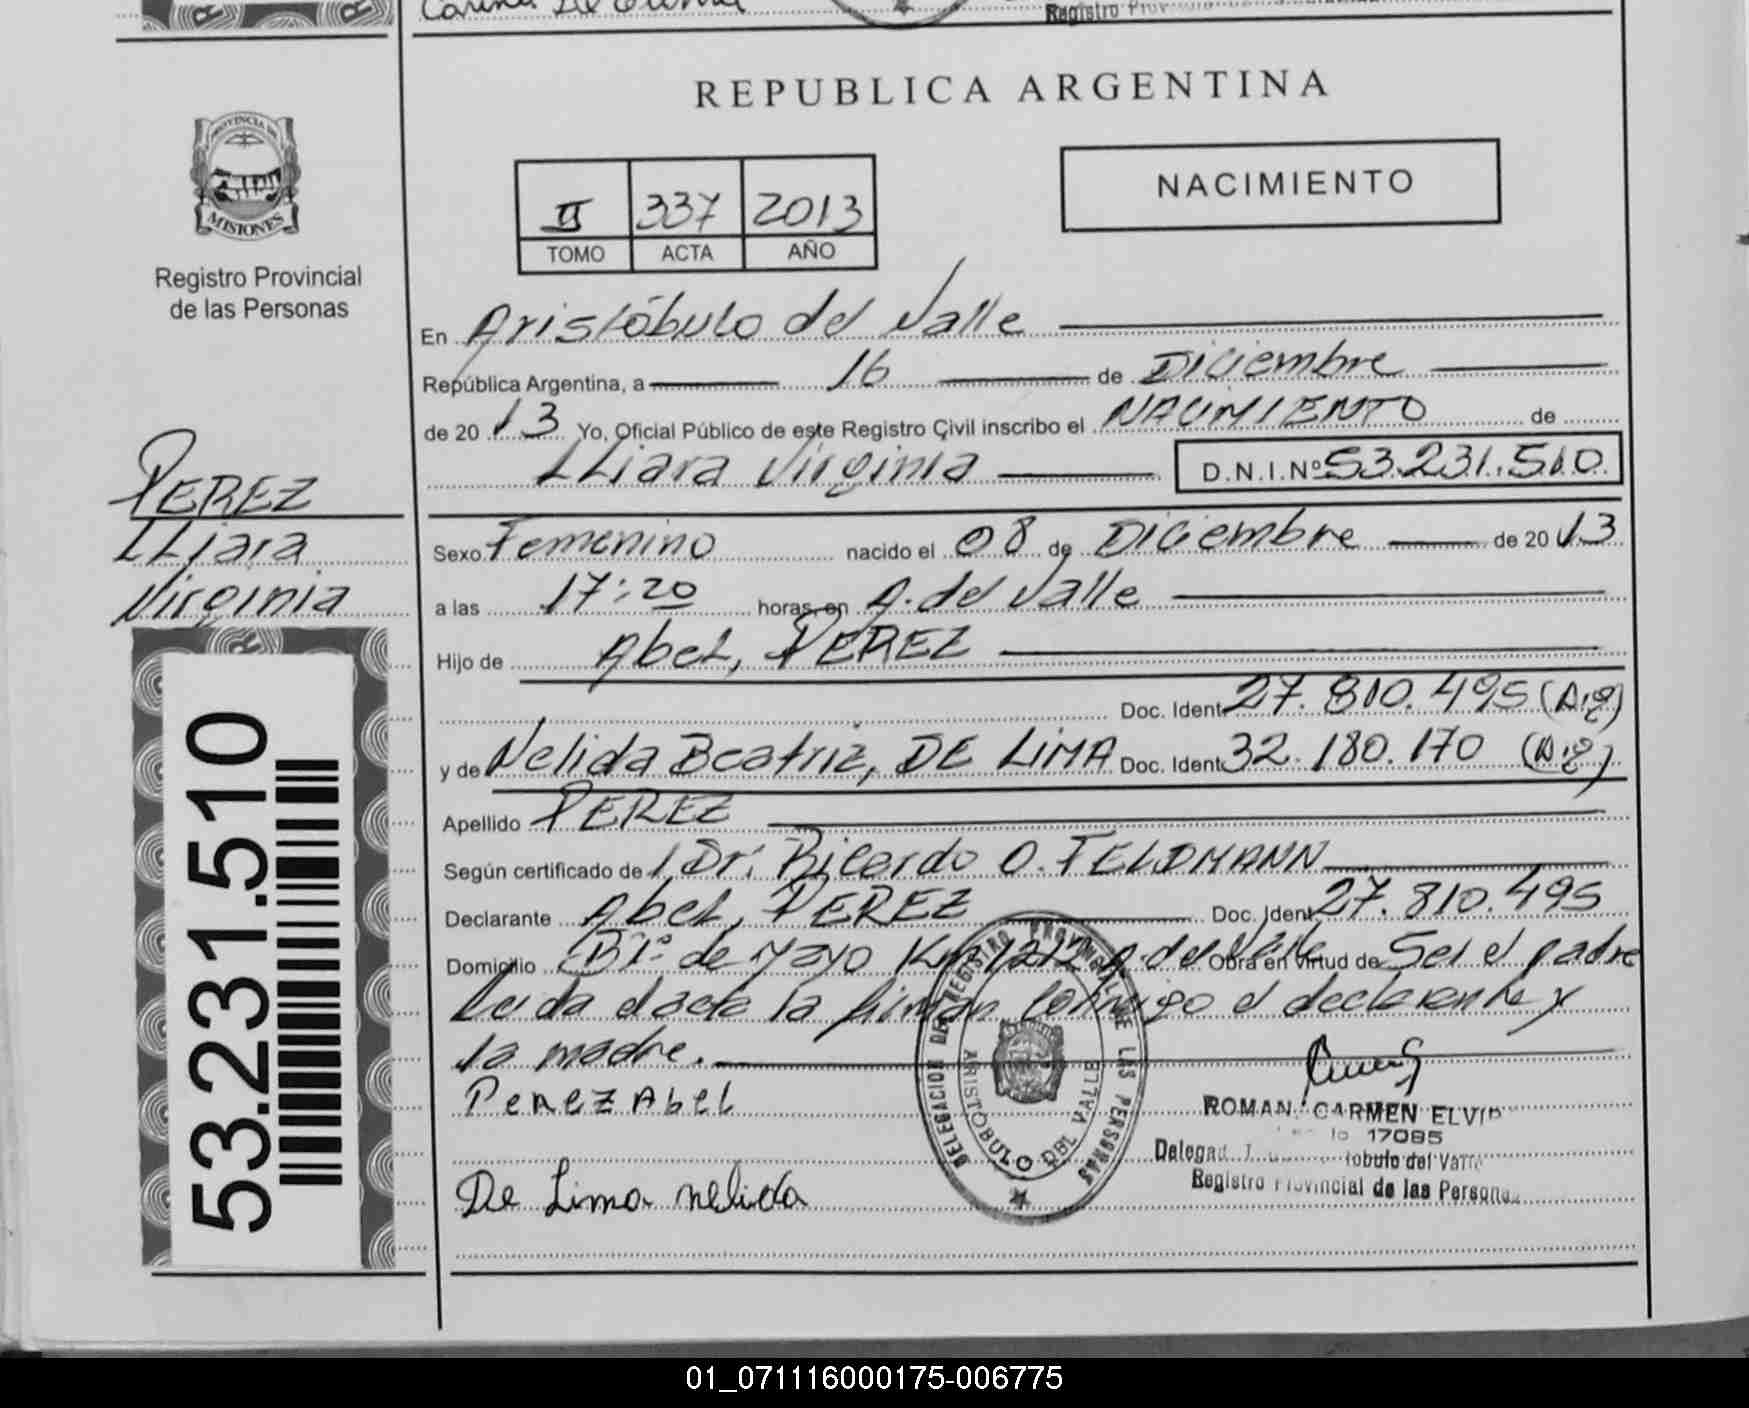 Registro
REPUBLICA ARGENTINA
PROVINCIA DE
MISIONES
Registro Provincial
de las Personas
NACIMIENTO
II 337 2013
TOMO ACTA AÑO
En Aristóbulo del Valle
República Argentina, a 16 de Diciembre
de 2013 Yo, Oficial Público de este Registro Civil inscribo el NACIMIENTO de
LLiara Virginia D.N.I.Nº 53.231.510
PEREZ
LLiara
Virginia
Sexo Femenino nacido el 08 de Diciembre de 2013
a las 17:20 horas, en A. del Valle
Hijo de Abel, PEREZ
Doc. Ident. 27.810.495 (Arg)
y de Nelida Beatriz, DE LIMA Doc. Ident. 32.180.170 (Arg)
Apellido PEREZ
Según certificado de Dr. Ricardo O. FELDMANN
Declarante Abel, PEREZ Doc. Ident. 27.810.495
Domicilio Bº 1º de Mayo Km 1212 A. del Valle Obra en virtud de Ser el padre
Leida el acta la firman conmigo el declarante y
la madre.
Perez Abel
De Lima nelida
DELEGACION DEL REGISTRO PROVINCIAL DE LAS PERSONAS
ARISTOBULO DEL VALLE
ROMAN CARMEN ELVIR
17085
Registro Provincial de las Personas
53.231.510
01_071116000175-006775